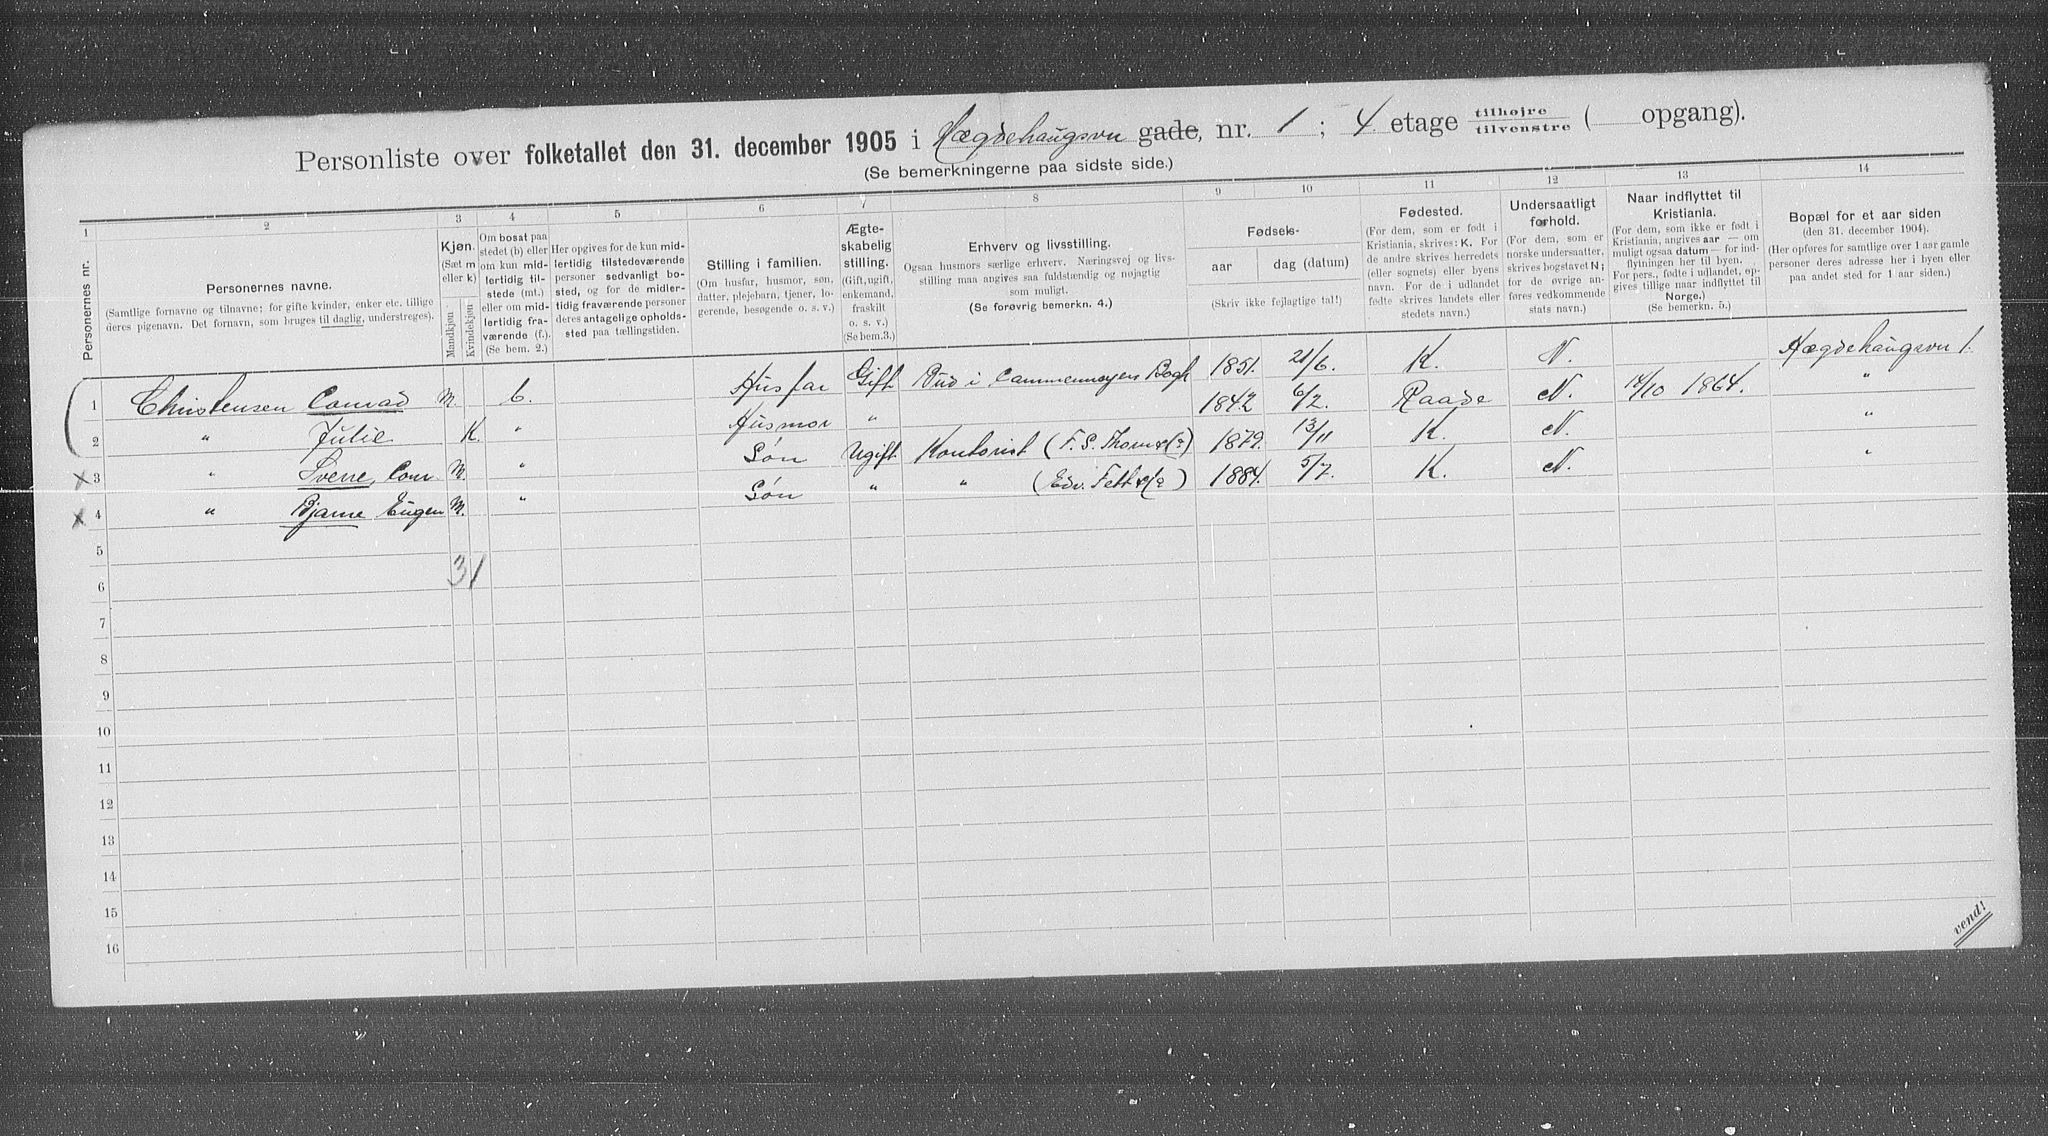 Personliste over folketallet den 31. december 1905 i Hægdehaugsvn gade, nr. 1; 4 etage tilhøjre tilvenstre ( opgang).
(Se bemerkningerne paa sidste side.)
1 2 3 4 5 6 7 8 9 10 11 12 13 14
Personernes nr.
Personernes navne.
(Samtlige fornavne og tilnavne; for gifte kvinder, enker etc. tillige
deres pigenavn. Det fornavn, som bruges til daglig, understreges).
Kjøn.
(Sæt m
eller k)
Mandkjøn
Kvindekjøn
Om bosat paa
stedet (b) eller
om kun mid-
lertidig til-
stede (mt.)
eller om mid-
lertidig fra-
værende (f.).
(Se bem. 2.)
Her opgives for de kun mid-
lertidig tilstedeværende
personer sedvanligt bo-
sted, og for de midler-
tidig fraværende personer
deres antagelige opholds-
sted paa tællingstiden.
Stilling i familien.
(Om husfar, husmor, søn,
datter, plejebarn, tjener, lo-
gerende, besøgende o. s. v.)
Ægte-
skabelig
stilling.
(Gift, ugift,
enkemand,
fraskilt
o. s. v.)
(Se bem.3.)
Erhverv og livsstilling.
Ogsaa husmors særlige erhverv. Næringsvej og livs-
stilling maa angives saa fuldstændig og nøjagtig
som muligt.
(Se forøvrig bemerkn. 4.)
Fødsels-
aar
dag (datum)
(Skriv ikke fejlagtige tal!)
Fødested.
(For dem, som er født i
Kristiania, skrives: K. For
de andre skrives herredets
(eller sognets) eller byens
navn. For de i udlandet
fødte skrives landets eller
stedets navn.)
Undersaatligt
forhold.
(For dem, som er
norske undersaatter,
skrives bogstavet N;
for de øvrige an-
føres vedkommende
stats navn.)
Naar indflyttet til
Kristiania.
(For dem, som ikke er født i
Kristiania, angives aar — om
muligt ogsaa datum — for ind-
flytningen her til byen.
For pers., fødte i udlandet, op-
gives tillige naar indflyttet til
Norge.)
(Se bemerkn. 5.)
Bopæl for et aar siden
(den 31. december 1904).
(Her opføres for samtlige over 1 aar gamle
personer deres adresse her i byen eller
paa andet sted for 1 aar siden.)
1 Christensen Conrad M. b. Husfar Gift Bud i Cammermeyers Bogh 1851. 21/6. K. N. Hægdehaugsvn 1.
2 " Julie K. " Husmor " 1842 6/2. Raade N. 14/10 1864. "
x 3 " Sverre Conr. M. " Søn Ugift Kontorist (F. S. Thorn & Co) 1879. 13/11 K. N. "
x 4 " Bjarne Eugen M. " Søn " " (Edv. Fett & Co) 1884. 5/7. K. N. "
5
6 3 1
7
8
9
10
11
12
13
14
15
16
vend!